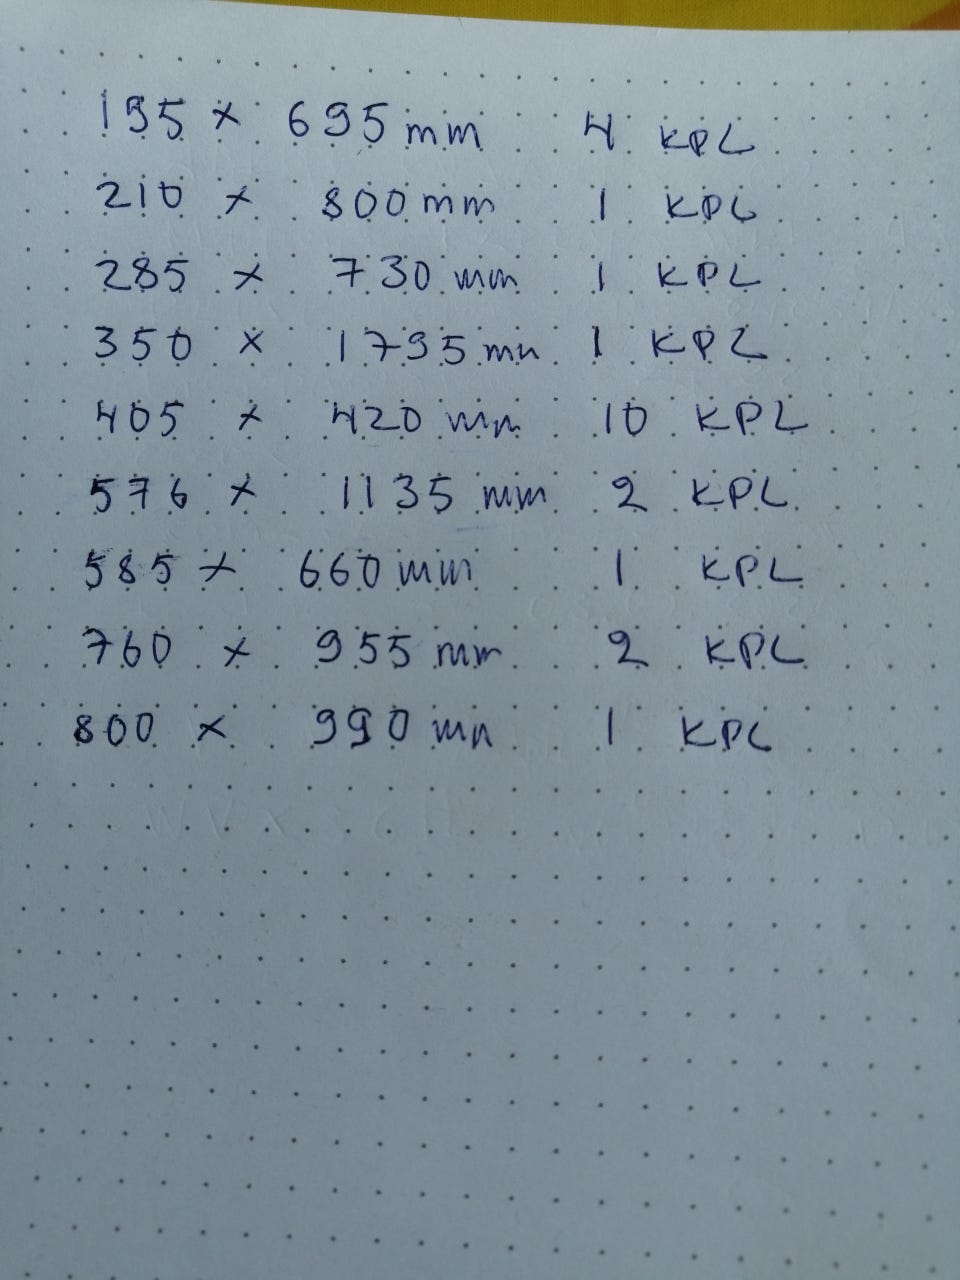 195 x 695 mm 4 KPL
210 x 800 mm 1 KPL
285 x 730 mm 1 KPL
350 x 1795 mm 1 KPL
405 x 420 mm 10 KPL
576 x 1135 mm 2 KPL
585 x 660 mm 1 KPL
760 x 955 mm 2 KPL
800 x 990 mm 1 KPL